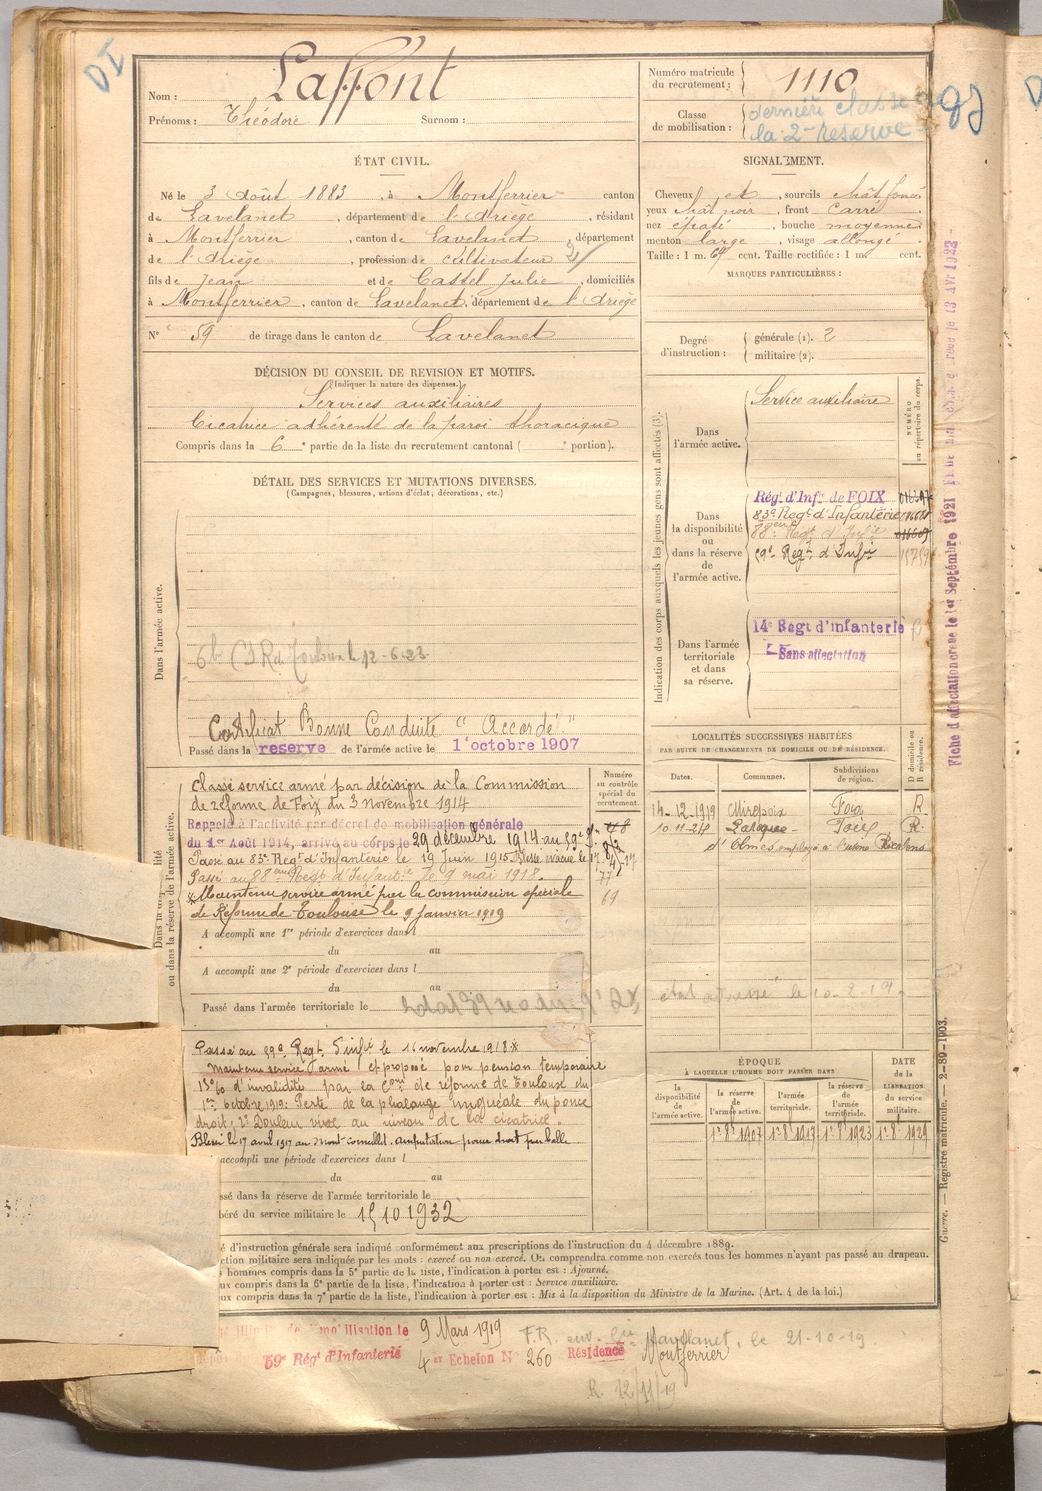 DI
Nom : Laffont
Prénoms : Théodore Surnom :
Numéro matricule du recrutement : 1110
Classe de mobilisation : dernière classe de la 2e réserve
ÉTAT CIVIL.
Né le 3 août 1883, à Montferrier canton
de Lavelanet, département de l'Ariège, résidant
à Montferrier, canton de Lavelanet, département
de l'Ariège, profession de cultivateur
fils de Jean et de Castel Julie, domiciliés
à Montferrier, canton de Lavelanet, département de l'Ariège
N° 59 de tirage dans le canton de Lavelanet
SIGNALEMENT.
Cheveux et, sourcils chât foncé
yeux chât noir, front carré
nez épaté, bouche moyenne
menton large, visage allongé.
Taille : 1 m. 69 cent. Taille rectifiée : 1 m cent.
MARQUES PARTICULIÈRES :
Degré d'instruction : générale (1). 2
militaire (2).
DÉCISION DU CONSEIL DE REVISION ET MOTIFS.
(Indiquer la nature des dispenses.)
Services auxiliaires
Cicatrice adhérente de la paroi thoracique
Compris dans la 6e partie de la liste du recrutement cantonal ( e portion).
DÉTAIL DES SERVICES ET MUTATIONS DIVERSES.
(Campagnes, blessures, actions d'éclat, décorations, etc.)
Dans l'armée active.
12-6-23
Certificat Bonne Conduite "Accordé"
Passé dans la réserve de l'armée active le 1er octobre 1907
Indication des corps auxquels les jeunes gens sont affectés (3).
NUMÉRO au répertoire du corps.
Dans l'armée active.
Service auxiliaire
Dans la disponibilité ou dans la réserve de l'armée active.
Régt d'Infie de FOIX
83e Regt d'Infanterie
88eme Regt d'Infie
59e Regt d'Infie
Dans l'armée territoriale et dans sa réserve.
14e Regt d'infanterie
Sans affectation
Numéro au contrôle spécial du recrutement.
Classé service armé par décision de la Commission
de réforme de Foix du 3 novembre 1914
Rappelé à l'activité par décret de mobilisation générale
du 1er Août 1914, arrivé au corps le 29 décembre 1914 au 59e
Passé au 83e Regt d'Infanterie le 19 Juin 1915
Passé au 88eme Regt d'Infantie le 9 mai 1918.
Maintenu service armé par la commission spéciale
de Réforme de Toulouse le 9 janvier 1919
ou dans la réserve de l'armée active.
A accompli une 1re période d'exercices dans l
du au
A accompli une 2e période d'exercices dans l
du au
Passé dans l'armée territoriale le
Passé au 59e Regt d'infie le 16 novembre 1918
Maintenu service armé et proposé pour pension temporaire
15 % d'invalidité par la Con de réforme de Toulouse du
1er octobre 1919 : Perte de la phalange unguéale du pouce
droit, 2° Douleur vive au niveau de la cicatrice.
Blessé le 17 avril 1917 au Mont-Cornillet. amputation pouce droit par balle
accompli une période d'exercices dans l
du au
ssé dans la réserve de l'armée territoriale le
béré du service militaire le 15 10 1932
LOCALITÉS SUCCESSIVES HABITÉES
PAR SUITE DE CHANGEMENTS DE DOMICILE OU DE RÉSIDENCE.
Dates. Communes. Subdivisions de région. D domicile ou R résidence.
14-12-1919 Mirepoix Foix R.
10-11-24 Laroque- Foix R.
d'Olmes employé à l'usine
ÉPOQUE
À LAQUELLE L'HOMME DOIT PASSER DANS
la disponibilité de l'armée active. la réserve de l'armée active. l'armée territoriale. la réserve de l'armée territoriale. DATE de la LIBÉRATION du service militaire.
1er 8bre 1907 1er 8bre 1917 1er 8bre 1923 1er 8bre 1929
é d'instruction générale sera indiqué conformément aux prescriptions de l'instruction du 4 décembre 1889.
ction militaire sera indiquée par les mots : exercé ou non exercé. On comprendra comme non exercés tous les hommes n'ayant pas passé au drapeau.
s hommes compris dans la 5e partie de la liste, l'indication à porter est : Ajourné.
ux compris dans la 6e partie de la liste, l'indication à porter est : Service auxiliaire.
ux compris dans la 7e partie de la liste, l'indication à porter est : Mis à la disposition du Ministre de la Marine. (Art. 4 de la loi.)
démobilisation le 9 Mars 1919
59e Régt d'Infanterie 4e Echelon N° 260 Résidence Montferrier
le 21-10-19
R. 12/11/19
Guerre. — Registre matricule. — 2-89-1903.
Fiche d'affectation créée le 1er Septembre 1921